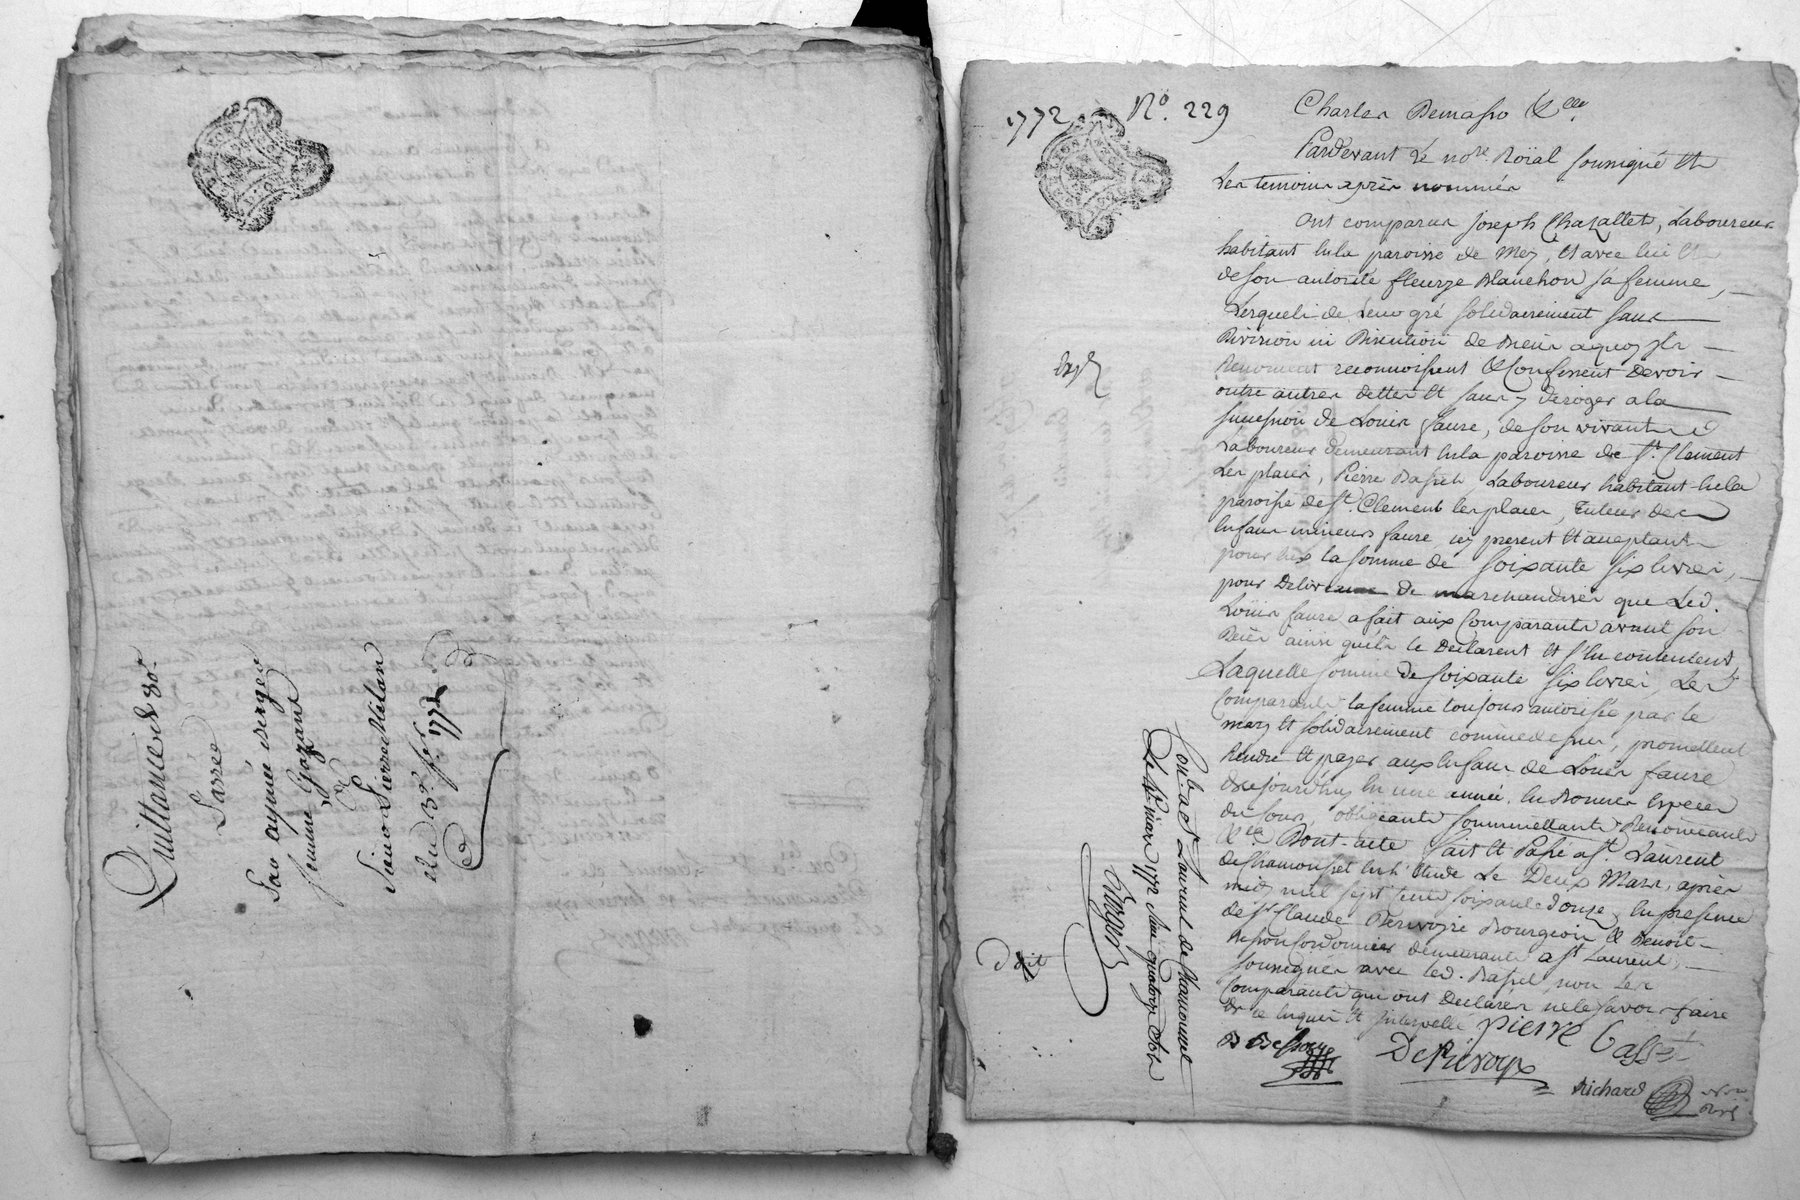 Quittance de 80tt
Par aymée verger
femme Gazant
a
Sieur Pierre Milan
du 3e fer 1772
1772 No. 229 Charles Demasso &clle.
Pardevant Le nore. Roïal soussigné Et
Les temoins après nommés
Ont comparus joseph Chazallet, Laboureur
habitant En la paroisse de Mey, Et avec lui Et
de son autorité fleurye Blanchon sa femme,
Lesquels de Leur gré solidairement sans
Division ni Discution de Biens a quoy ils
Renoncent reconnoissent & Confessent Devoir
outre autres dettes Et sans y deroger a la
succession de Louis faure, de son vivant
Laboureur demeurant En la paroisse de St. Clement
Les places, Pierre Basset Laboureur habitant En la
paroisse de St. Clement les places, Tuteur des
Enfans mineurs faure icy present Et acceptant
pour Eux la somme de soixante six livres,
pour Delivrance de marchandises que Led.
Loüis faure a fait aux Comparants avant son
Decès ainsi qu'ils le Declarent Et s'En contentent,
Laquelle somme de soixante six livres, Les
Comparants la femme toujours autorisée par le
mary Et solidairement comme dessus, promettent
Rendre Et payer aux Enfans de Louis faure
D'aujourd'huy En une année, En Bonnes Especes
du Cours, obligeants soummettants Renonceants
&ca. Dont acte fait Et Passé a St. Laurent
de Chamousset En l'Etude Le Deux Mars, après
midy mil sept cent soixante douze, En presence
de Sr. Claude Dervoyre Bourgeois & Benoît
Besson Cordonnier demeurants a St. Laurent,
soussignés avec led. Basset, non Les
Comparants qui ont Declarés ne le savoir faire
de ce Enquis Et Interpellé
pierre Basset
B Besson
Richard
Conlé. a St Laurent de Chamousset
Le 4e. mars 1772 Reçu quatorze sols
Verger